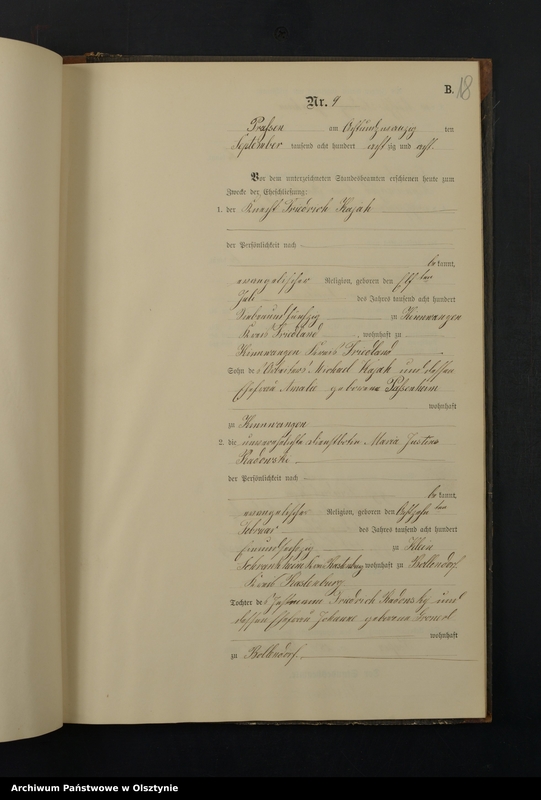 B. 18
Nr. 9
Prassen am Achtundzwanzig ten
September tausend acht hundert achtzig und acht.
Vor dem unterzeichneten Standesbeamten erschienen heute zum
Zwecke der Eheschließung:
1. der Knecht Friedrich Kajah
der Persönlichkeit nach
be kannt,
evangelischer Religion, geboren den elf ten
Juli des Jahres tausend acht hundert
siebenundfünfzig zu Kinnwangen
Kreis Friedland, wohnhaft zu
Kinnwangen Kreis Friedland
Sohn des Michael Kajah und dessen
Ehefrau Amalie geborene Passenheim
wohnhaft
zu Kinnwangen
2. die unverehelichte Dienstbotin Maria Justine
Radowski
der Persönlichkeit nach
be kannt,
evangelischer Religion, geboren den ten
Februar des Jahres tausend acht hundert
einundsechzig zu Klein
Schrankheim Kreis Rastenburg wohnhaft zu Bollendorf
Kreis Rastenburg
Tochter des Friedrich Radowsky und
dessen Ehefrau Johanne geborene
wohnhaft
zu Bollendorf.
Archiwum Państwowe w Olsztynie